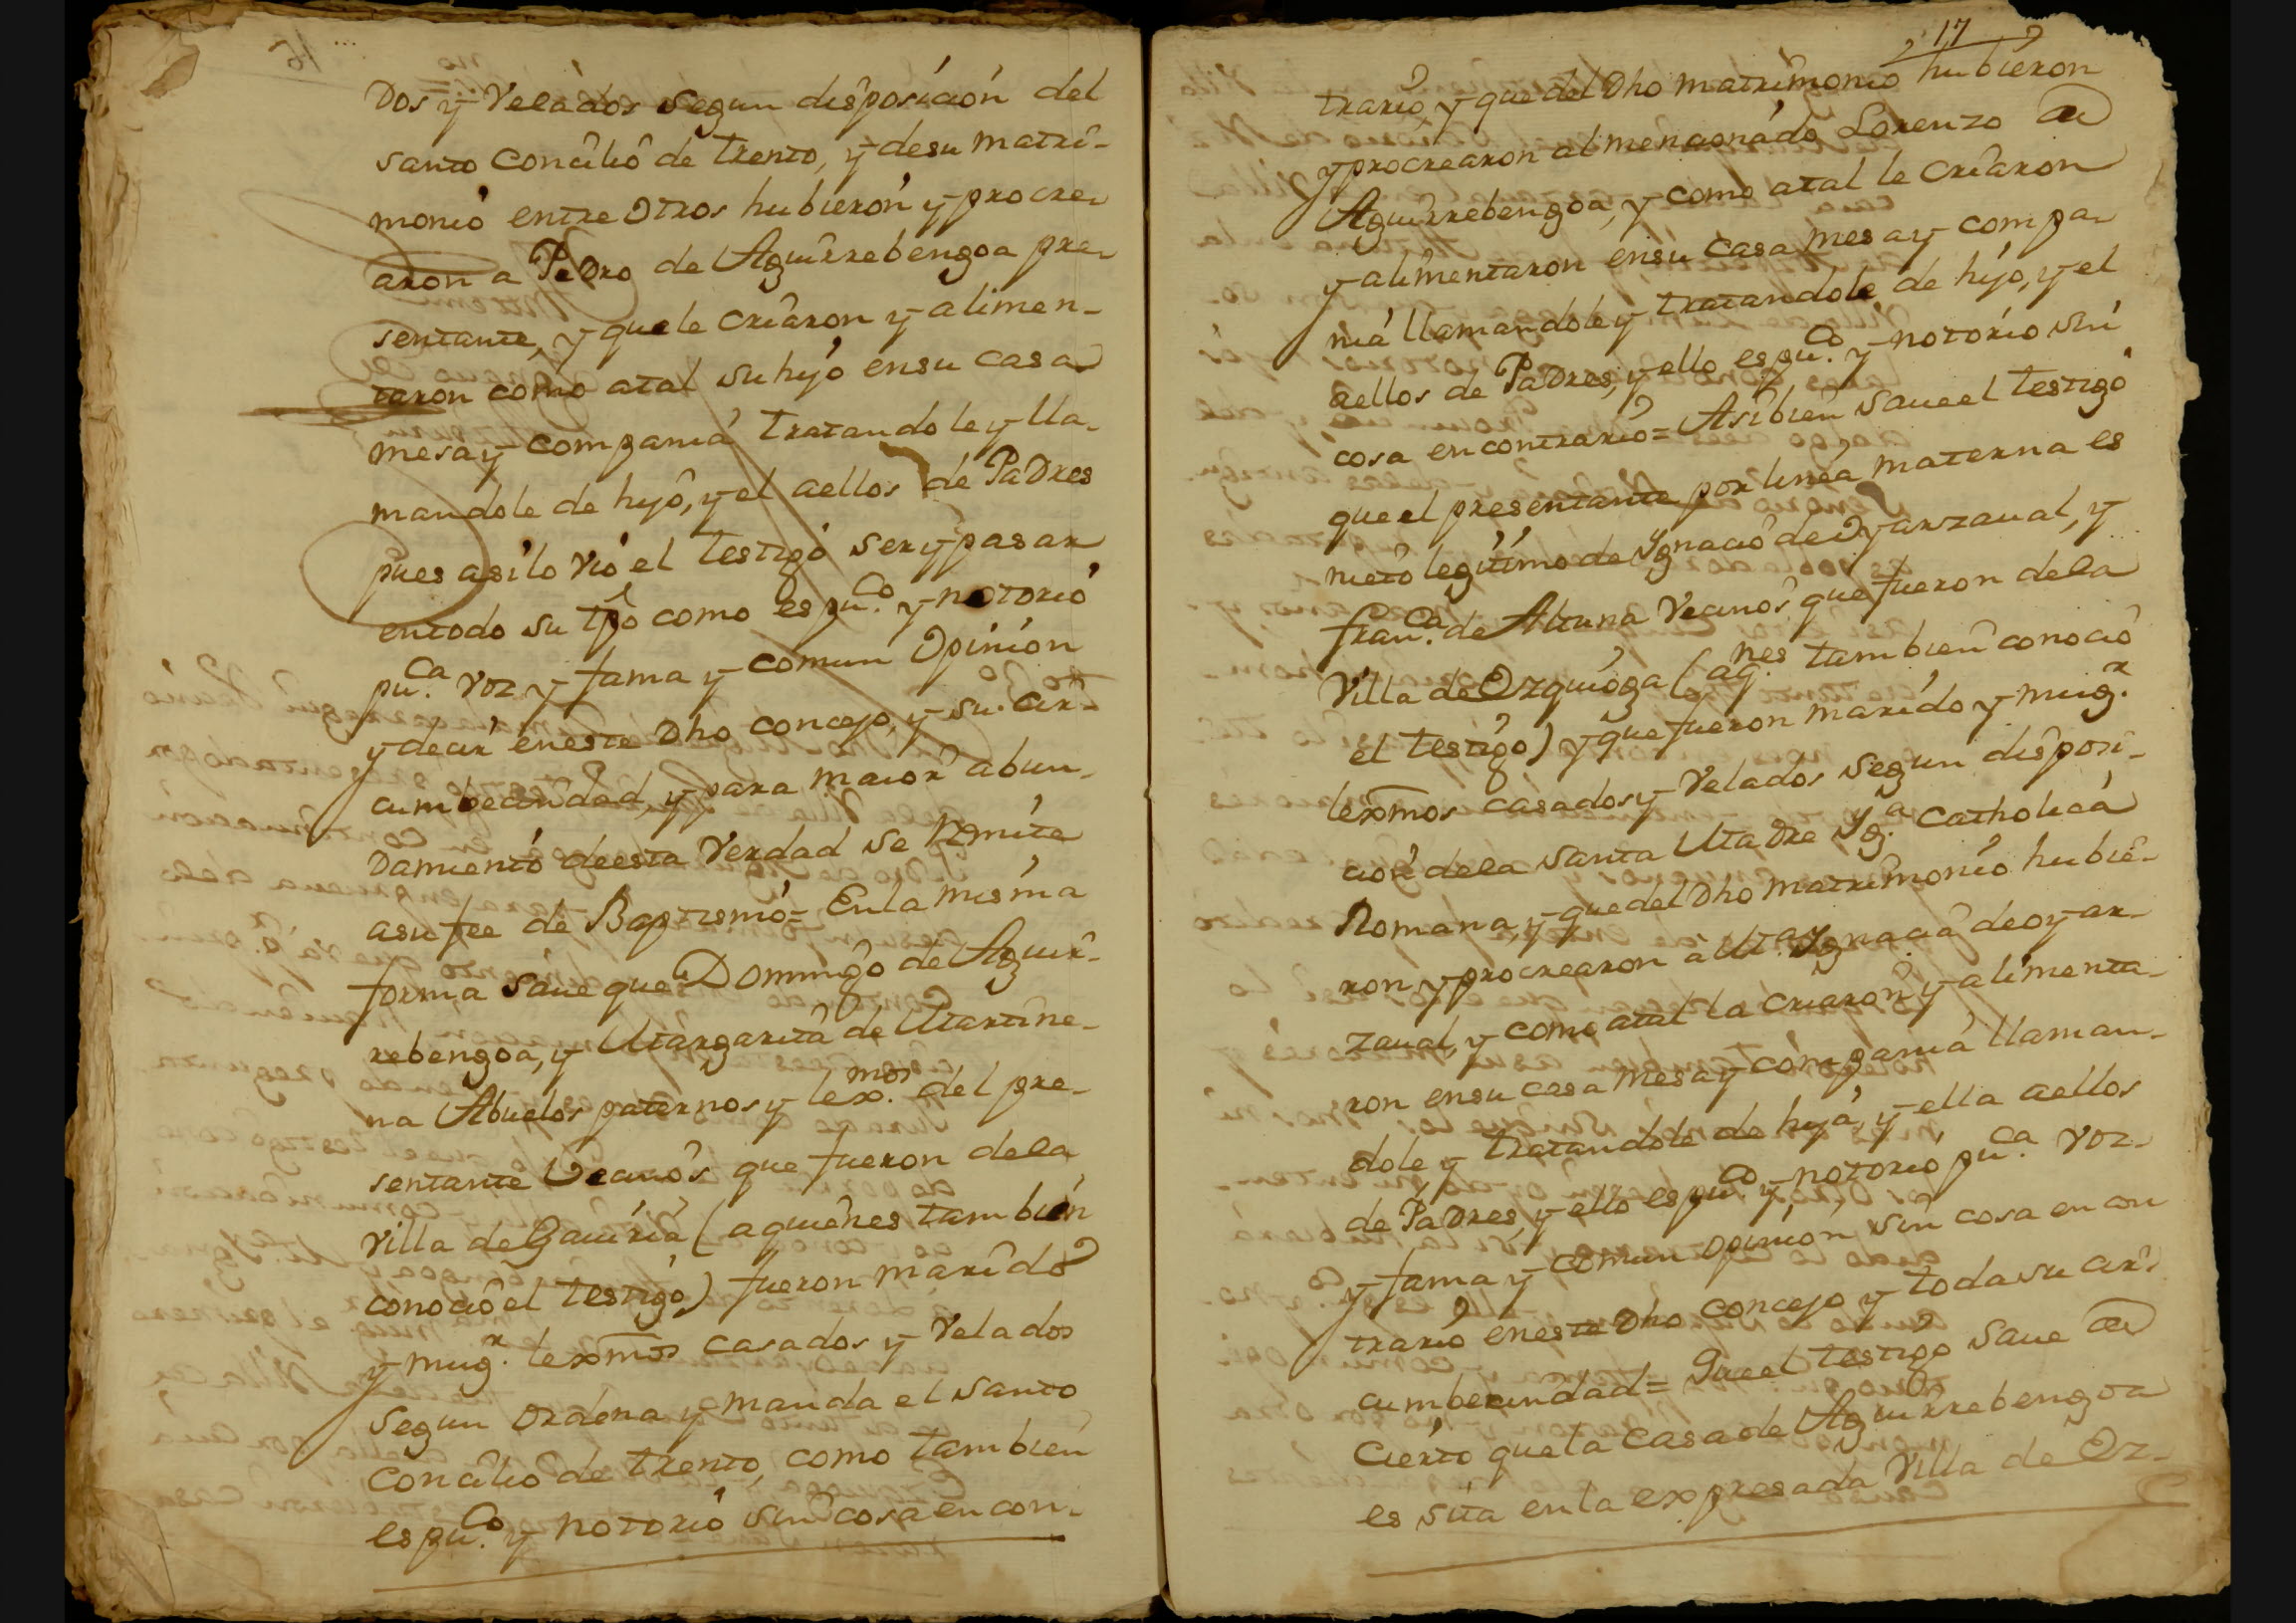 Dos y Velados segun disposicion del
santo concilio de trento, y desu matri-
monio entre otros hubieron y procre-
aron a Pedro de Aguirrebengoa pre-
sentante, y quele criaron y alimen-
taron como atal su hijo ensu casa
mesa y compania tratandole y lla-
mandole de hijo, y el aellos de Padres
pues asilo vio el testigo ser y pasar
entodo su tpo como es puco. y notorio
puca. voz y fama y comun opinion
y decir eneste dho concejo, y su cir-
cumbecindad, y para maior abun-
damiento deesta verdad se remite
asu fee de Baptismo = Enla misma
forma saue que Domingo de Aguir-
rebengoa, y Margarita de Martine-
na Abuelos paternos y lexmos. del pre-
sentante Vecinos que fueron dela
Villa de Gauiria (aquienes tambien
conocio el testigo) fueron marido
y mugr. lexmos casados y Velados
segun ordena y manda el santo
concilio de trento, como tambien
es puco. y notorio sin cosa en con-
17
trario, y que del dho matrimonio hubieron
y procrearon al mencionado Lorenzo de
Aguirrebengoa, y como atal le criaron
y alimentaron ensu casa mesa y compa-
nia llamandole y tratandole de hijo, y el
aellos de Padres, y ello es puco. y notorio sin
cosa en contrario = Asibien saueel testigo
queel presentante por linea materna es
nieto legitimo de Ygnacio de Oyarzaual, y
Franca. de Altuna Vecinos que fueron dela
Villa de Ezquioga (aqnes. tambien conocio
el testigo) y que fueron marido y mugr.
lexmos casados y Velados segun disposi-
cion dela santa Madre Yga. Catholica
Romana, y que del dho matrimonio hubie-
ron y procrearon a Ma. Ygnacia de oyar-
zaual, y como atal la criaron y alimenta-
ron ensu casa mesa y compania llaman-
dole y tratandole de hija, y ella aellos
de Padres, y ello es puco. y notorio puca. voz
y fama y comun opinion sin cosa en con
trario eneste dho concejo y toda su cir-
cumbecindad = Queel testigo saue de
Cierto quela casa de Aguirrebengoa
es sita enla expresada Villa de Ez-